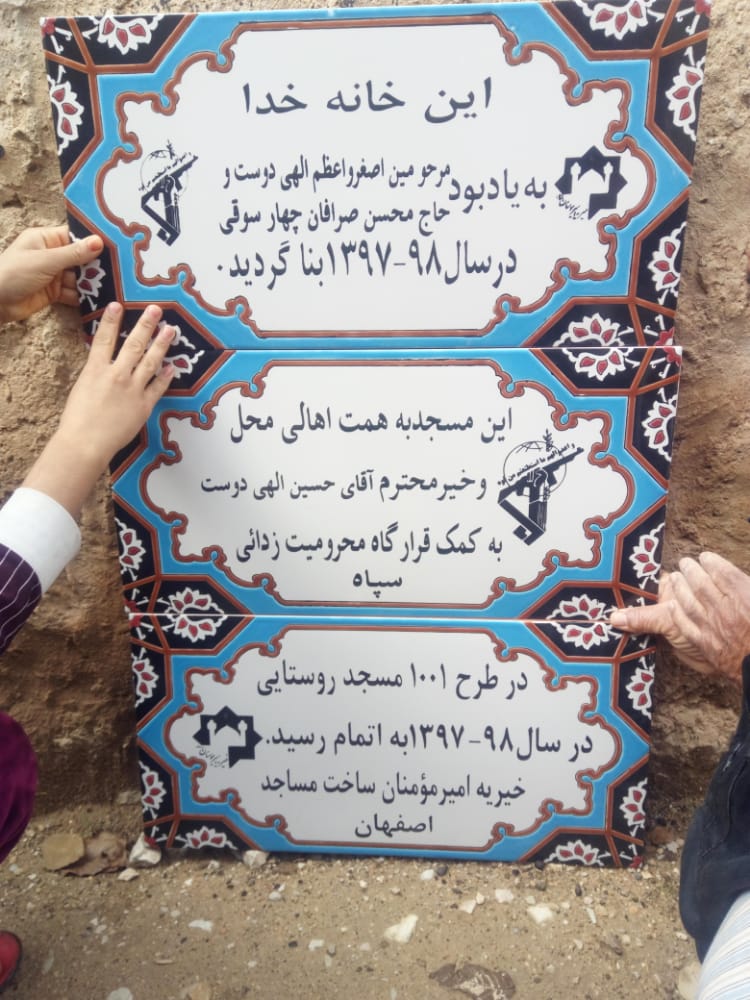 این خانه خدا
به یادبود مرحو مین اصغرواعظم الهی دوست و
حاج محسن صرافان چهار سوقی
درسال ۹۸-۱۳۹۷بنا گردید.
این مسجدبه همت اهالی محل
وخیرمحترم آقای حسین الهی دوست
به کمک قرار گاه محرومیت زدائی
سپاه
در طرح ۱۰۰۱ مسجد روستایی
در سال ۹۸-۱۳۹۷به اتمام رسید.
خیریه امیرمؤمنان ساخت مساجد
اصفهان